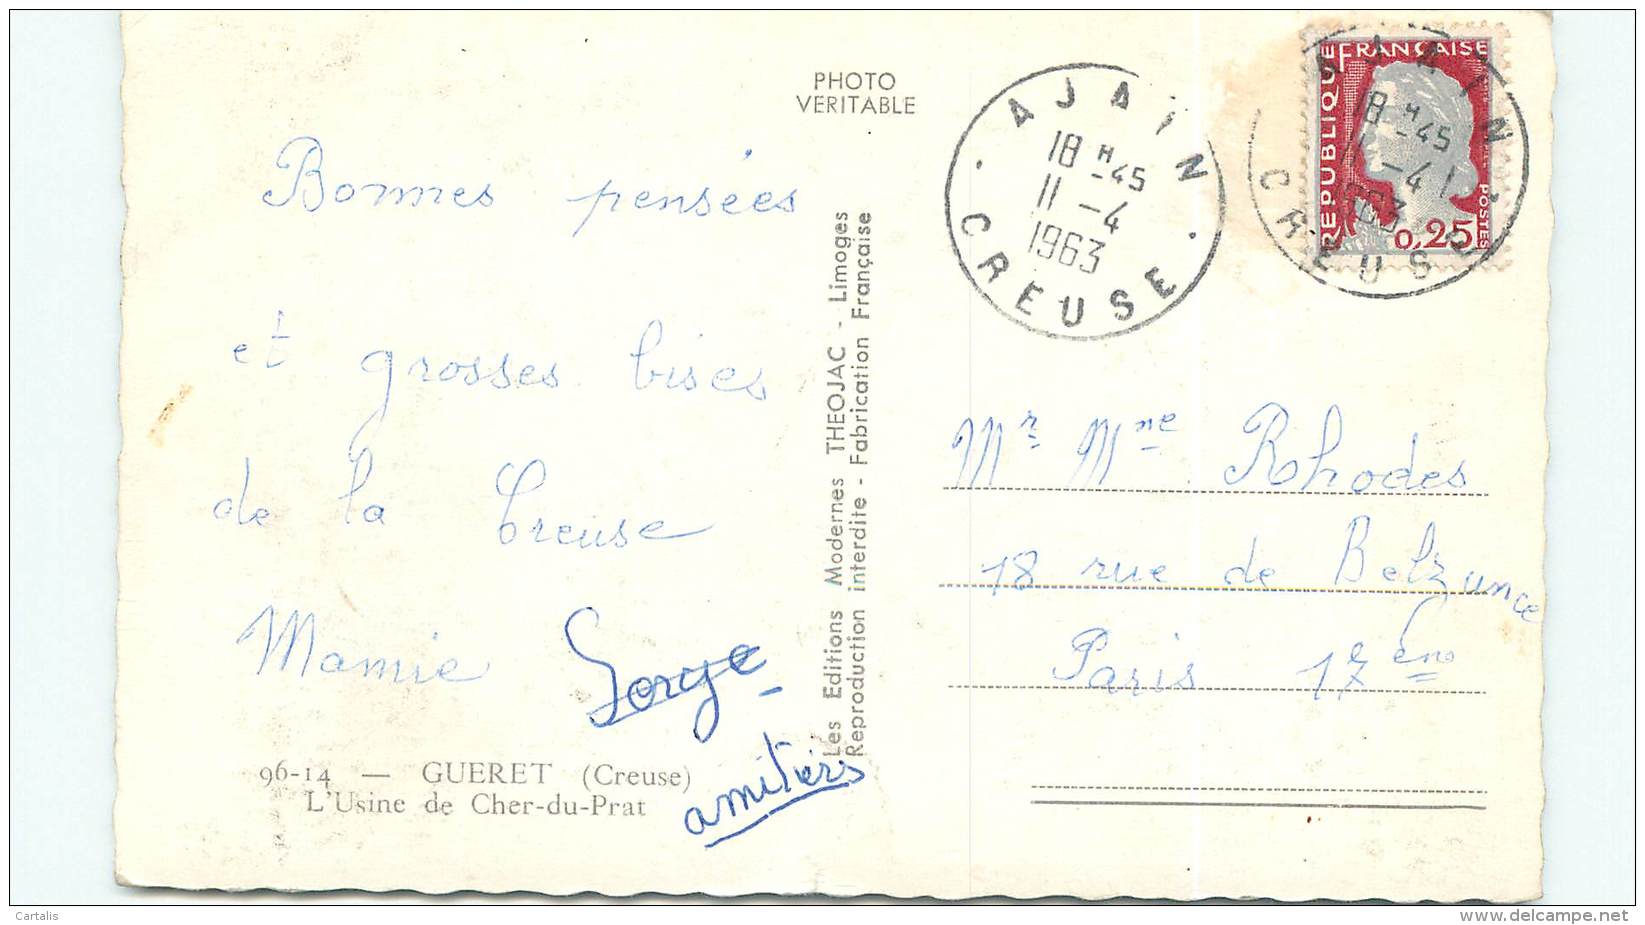 PHOTO
VERITABLE
Bonnes pensées
et grosses bises
de la Creuse
Mamie
amitiers
96-14 — GUERET (Creuse)
L'Usine de Cher-du-Prat
Les Editions Modernes THEOJAC - Limoges
Reproduction interdite - Fabrication Française
AJAIN
18 H -45
11 -4
1963
CREUSE
REPUBLIQUE FRANÇAISE
POSTES
0,25
AJAIN
18 H -45
11 -4
1963
CREUSE
Mr Mme Rhodes
18 rue de Belzunce
Paris
Cartalis
www.delcampe.net